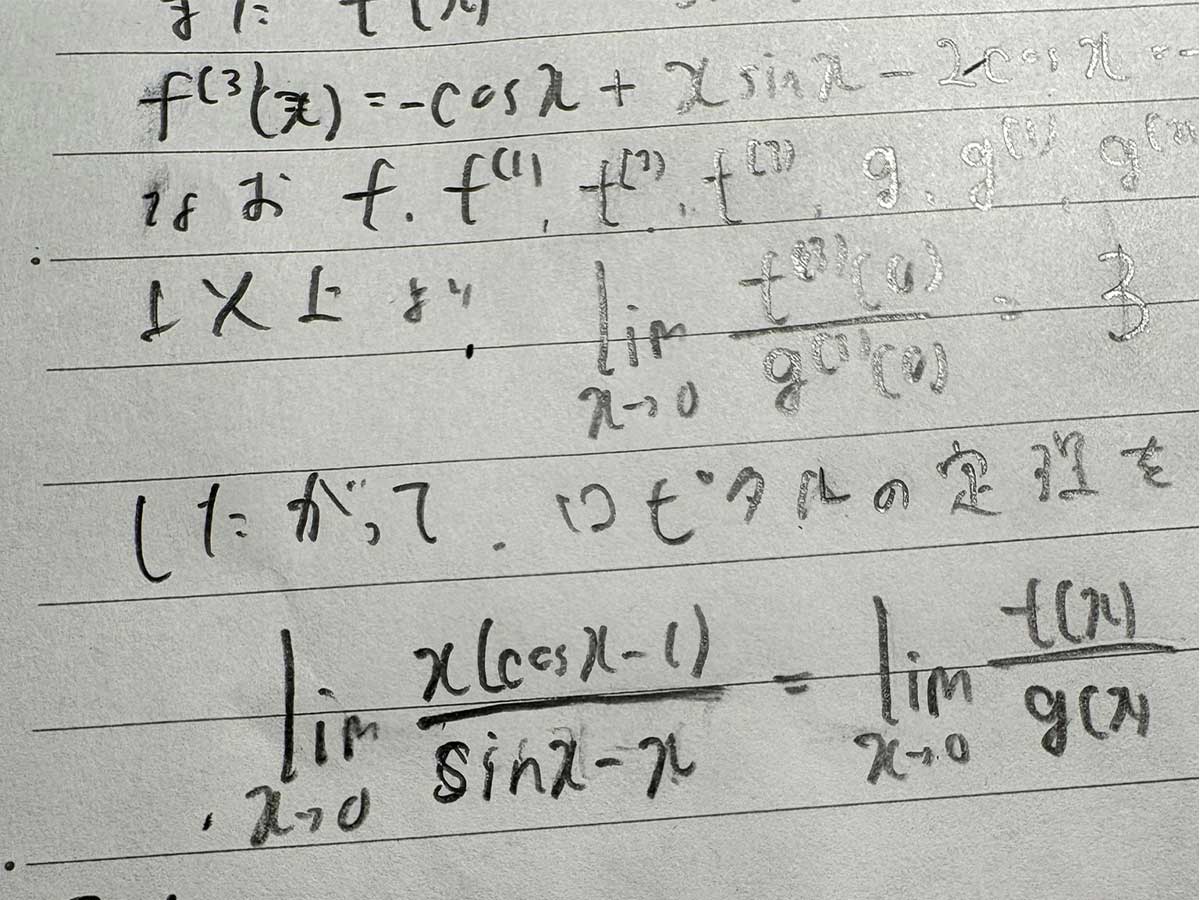 また f(x)
f⁽³⁾(x) = -cosx + x sinx - 2cosx = -
なお f, f⁽¹⁾, f⁽²⁾, f⁽³⁾, g, g⁽¹⁾, g⁽²⁾
以上より, lim x→0 f⁽³⁾(0) / g⁽³⁾(0) = 3
したがって, ロピタルの定理を
lim x→0 x(cosx-1) / sinx-x = lim x→0 f(x) / g(x)